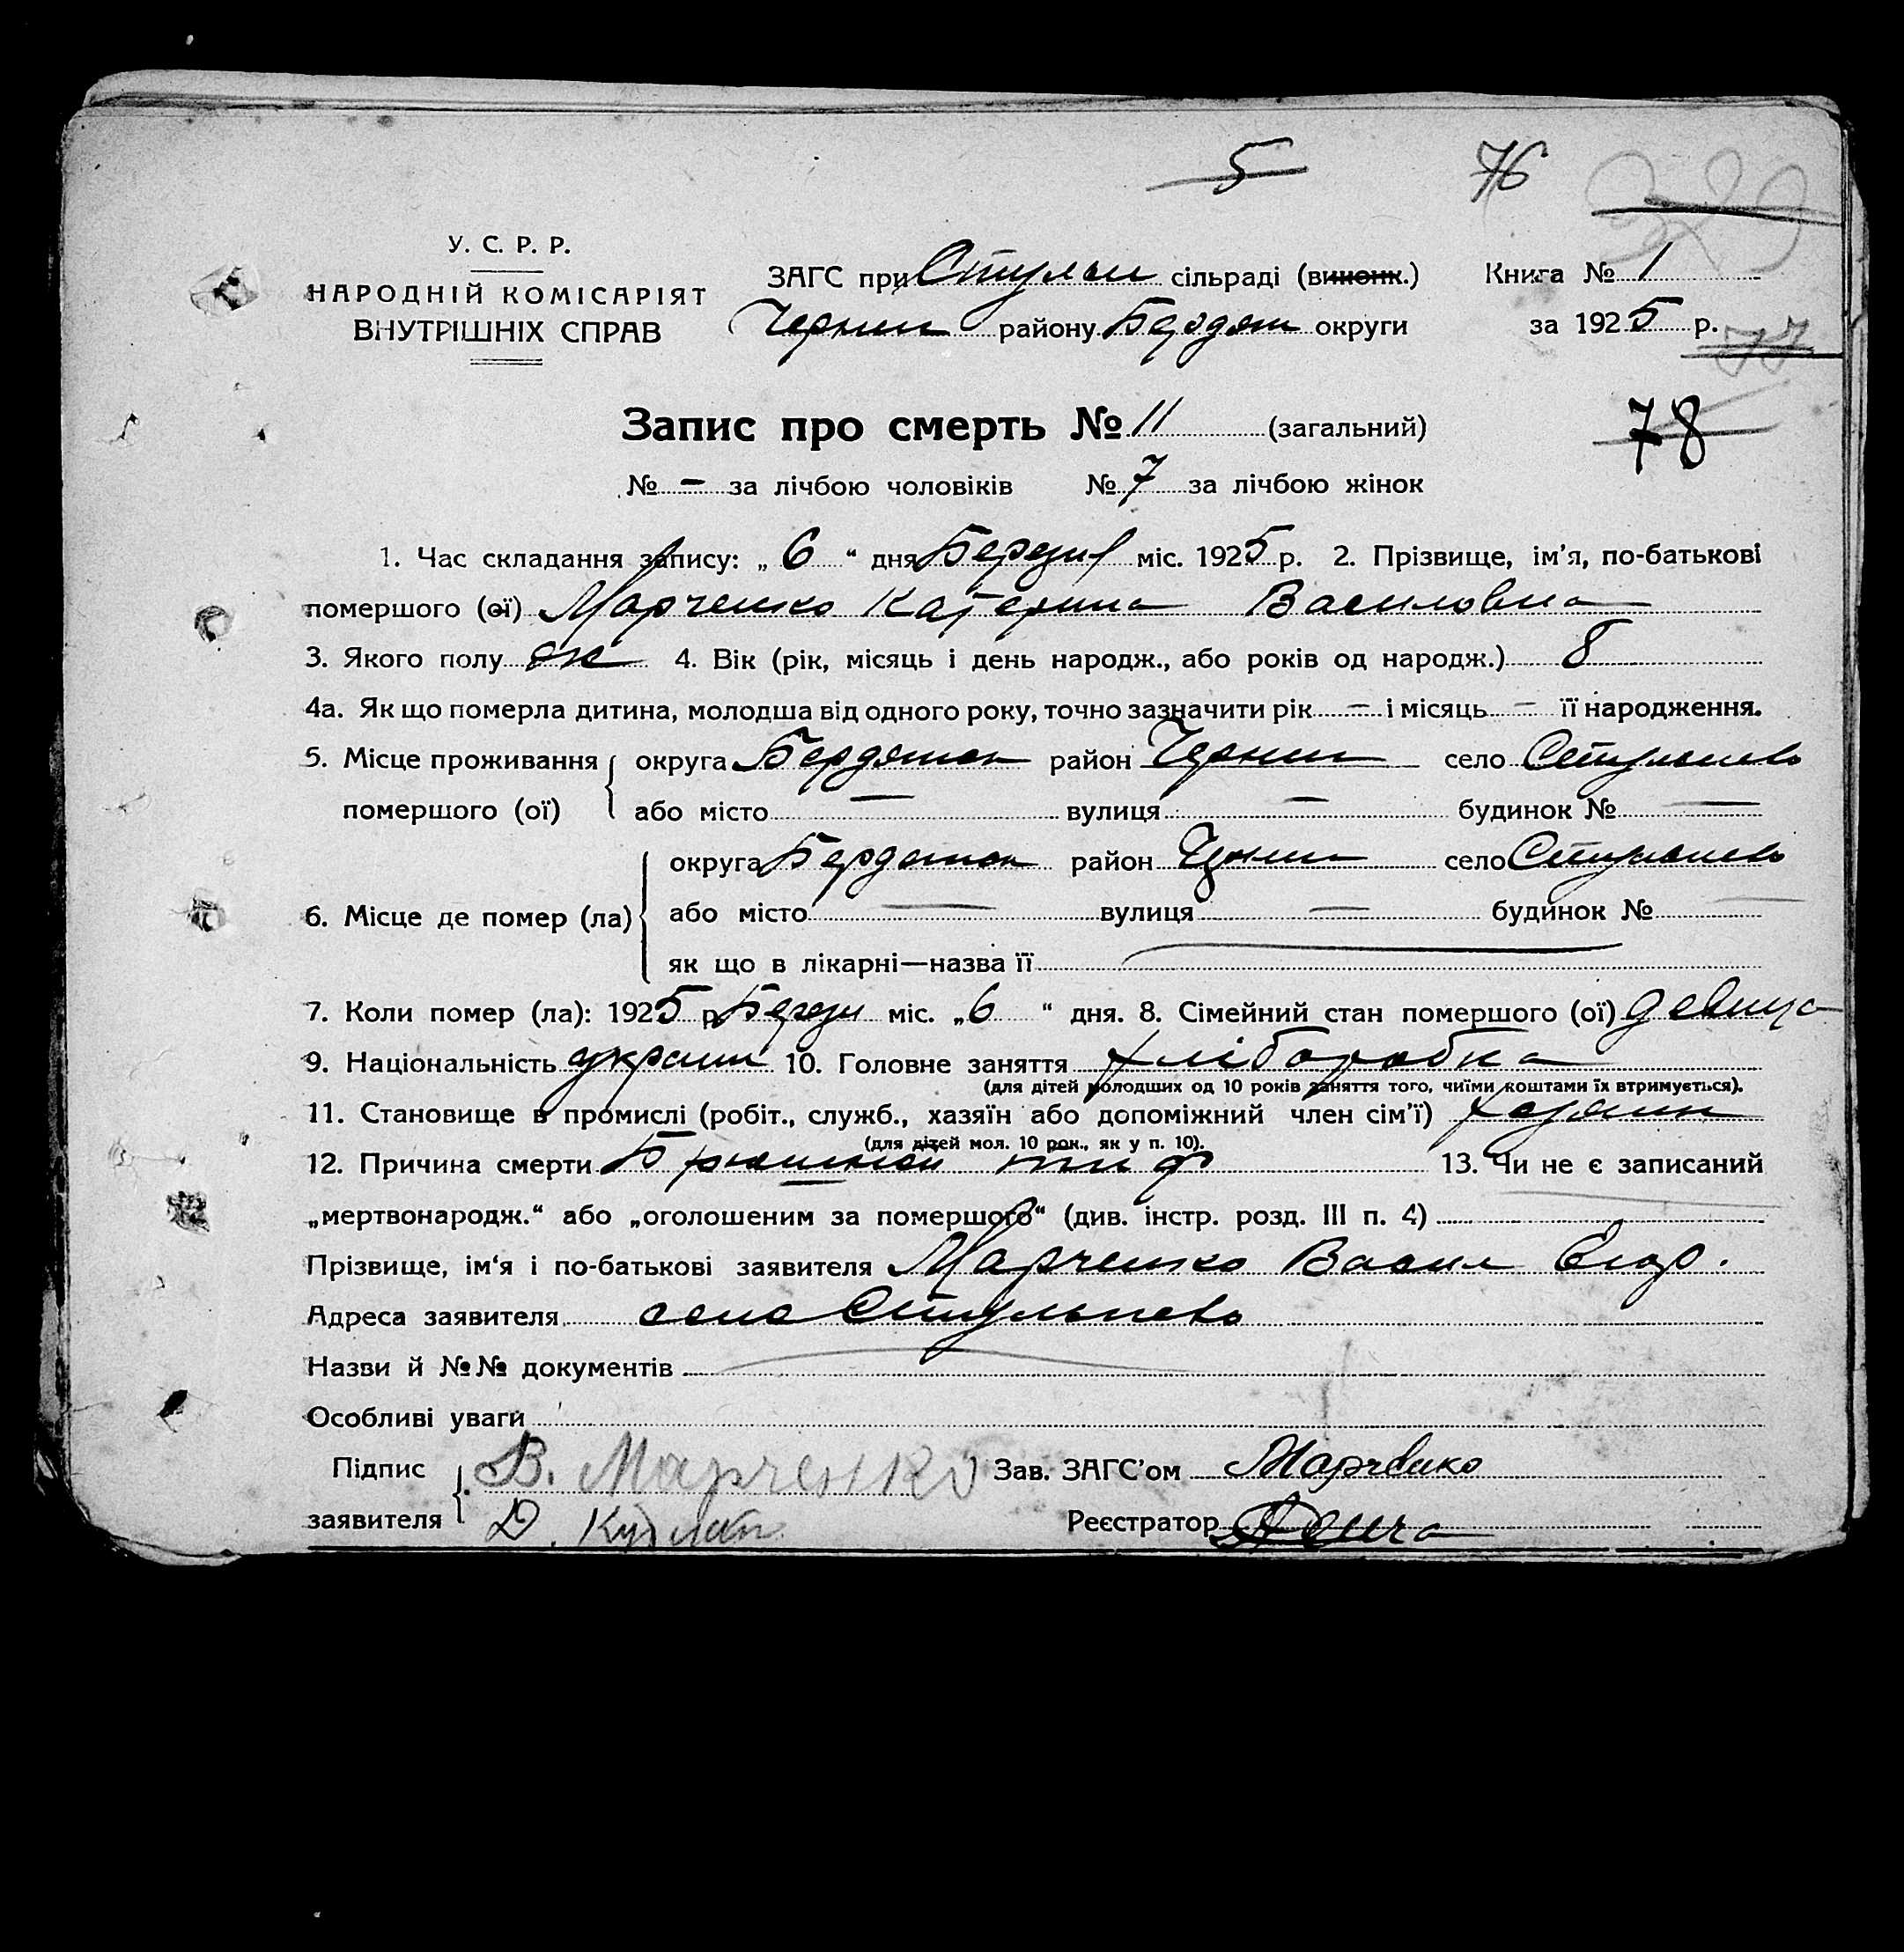 5 76 329
У. С. Р. Р.
НАРОДНІЙ КОМІСАРІЯТ
ВНУТРІШНІХ СПРАВ
ЗАГС при Стульн сільраді (виконк.) Книга № 1
Черниг району Бердян округи за 1925 р. 77
Запис про смерть № 11 (загальний) 78
№ – за лічбою чоловіків № 7 за лічбою жінок
1. Час складання запису: „ 6 “ дня Березня міс. 1925 р. 2. Прізвище, ім’я, по-батькові
помершого (ої) Марченко Катерина Василовна
3. Якого полу ж 4. Вік (рік, місяць і день народж., або років од народж.) 8
4а. Як що померла дитина, молодша від одного року, точно зазначити рік – і місяць – її народження.
5. Місце проживання округа Бердянск район Черниг село Стульнево
помершого (ої) або місто — вулиця — будинок № —
округа Бердянск район Черниг село Стульнево
6. Місце де помер (ла) або місто — вулиця — будинок № —
як що в лікарні—назва її —
7. Коли помер (ла): 1925 р. Берез міс. „6 “ дня. 8. Сімейний стан помершого (ої) девица
9. Національність украин 10. Головне заняття хліборобка
(для дітей молодших од 10 років заняття того, чиїми коштами їх втримується).
11. Становище в промислі (робіт., служб., хазяїн або допоміжний член сім’ї) хозяин
(для дітей мол. 10 рок., як у п. 10).
12. Причина смерти Брюшной тиф 13. Чи не є записаний
„мертвонародж.“ або „оголошеним за помершого“ (див. інстр. розд. III п. 4)
Прізвище, ім‘я і по-батькові заявителя Марченко Васил Егор.
Адреса заявителя село Стульнево
Назви й №№ документів
Особливі уваги
Підпис В. Марченко Зав. ЗАГС’ом Марченко
заявителя Д. Реєстратор